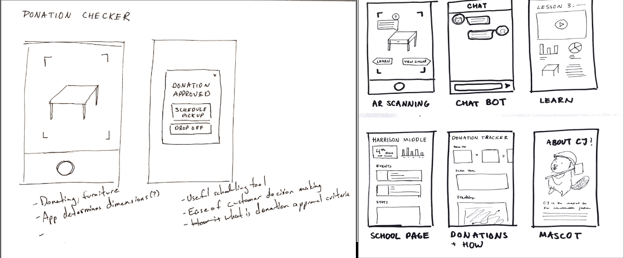 DONATION CHECKER
DONATION
APPROVED
SCHEDULE
PICKUP
DROP OFF
- Donating furniture
- App determines dimensions(?)
-
- Useful scheduling tool
- Ease of customer decision making
- How is what is donation approval criteria
LEARN
AR SCANNING
CHAT
CHAT BOT
LESSON 3:
LEARN
HARRISON MIDDLE
4TH
EVENTS
STATS
SCHOOL PAGE
DONATION TRACKER
DONATIONS
+ HOW
ABOUT CJ!
MASCOT